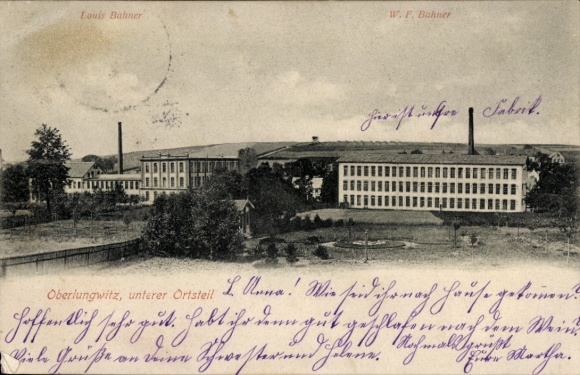 Louis Bahner
W. F. Bahner
hier ist unsre Fabrik.
Oberlungwitz, unterer Ortsteil
L. Anna! Wie seid ihr nach Hause gekomen?
Hoffentlich sehr gut. Habt ihr denn gut geschlafen nach dem Wein?
Viele Grüße an deine Schwester und Helene. Nochmals grüßt
Eure Martha.